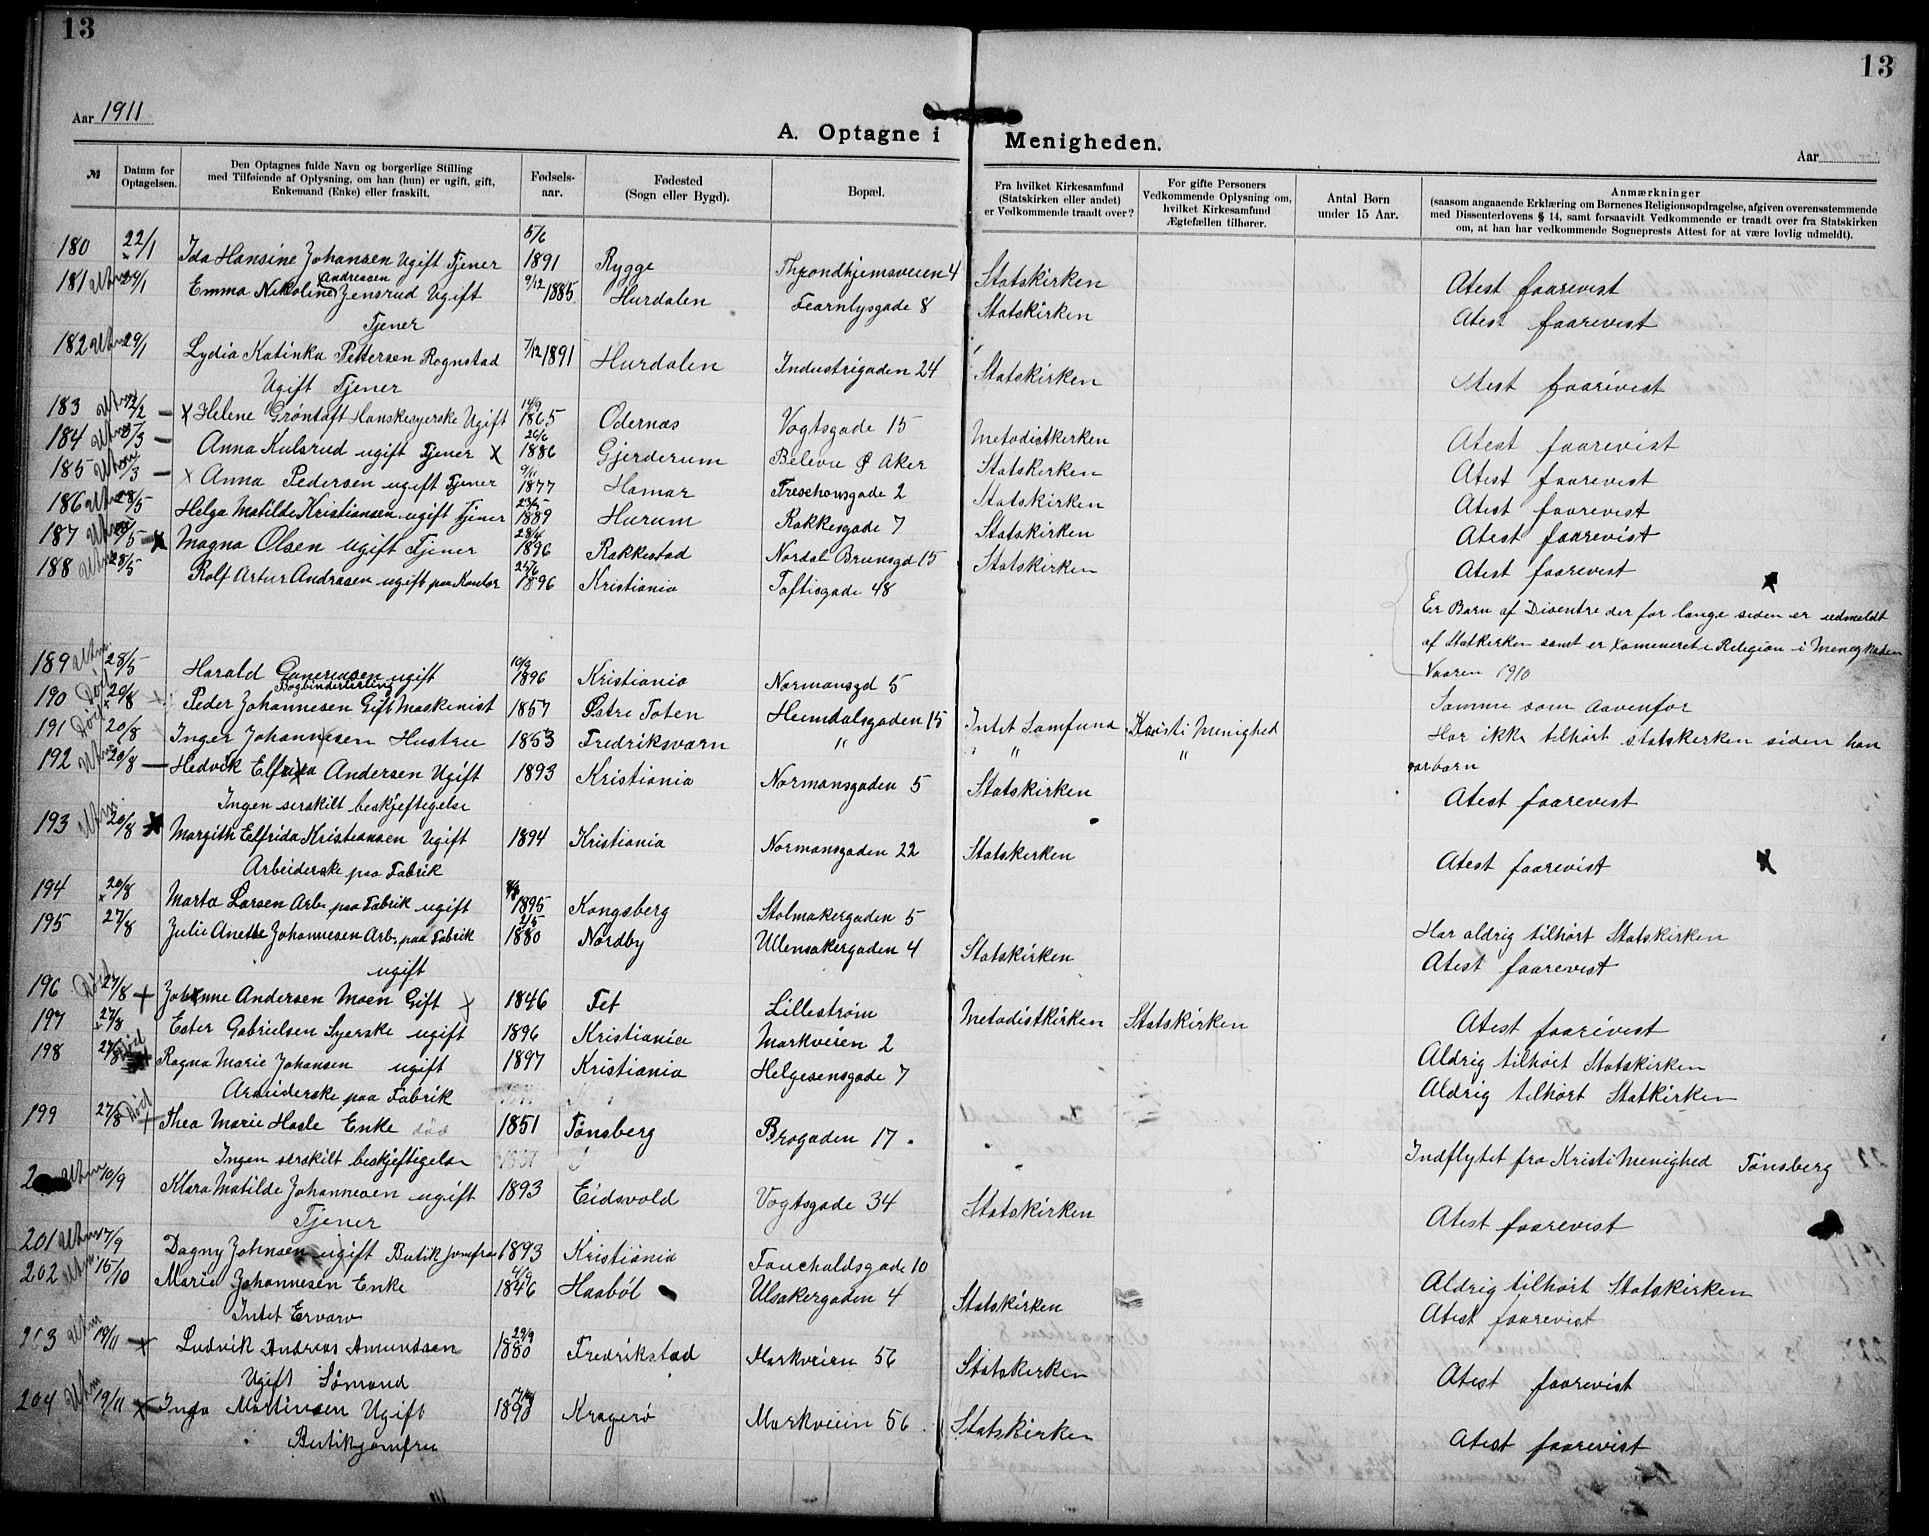 13
13
Aar 1911
A. Optagne i Menigheden.
Aar
№
Datum for Optagelsen.
Den Optagnes fulde Navn og borgerlige Stilling
med Tilføiende af Oplysning, om han (hun) er ugift, gift,
Enkemand (Enke) eller fraskilt.
Fødsels-
aar.
Fødested
(Sogn eller Bygd).
Bopæl.
Fra hvilket Kirkesamfund
(Statskirken eller andet)
er Vedkommende traadt over?
For gifte Personers
Vedkommende Oplysning om,
hvilket Kirkesamfund
Ægtefællen tilhører.
Antal Børn
under 15 Aar.
Anmærkninger
(saasom angaaende Erklæring om Børnenes Religionsopdragelse, afgiven overensstemmende
med Dissenterlovens § 14, samt forsaavidt Vedkommende er traadt over fra Statskirken
om, at han har vedkommende Sogneprests Attest for at være lovlig udmeldt).
180 22/1 Ida Hansine Johansen Ugift Tjener 5/6 1891 Rygge Throndhjemsveien 4 Statskirken Atest faarevist
181 Utm 24/1 Emma Nikoline Andreasen Jensrud Ugift 9/12 1885 Hurdalen Fearnlysgade 8 Statskirken Atest faarevist
Tjener
182 Utm 29/1 Lydia Katinka Pettersen Rognstad 7/12 1891 Hurdalen Industrigaden 24 Statskirken Atest faarevist
Ugift Tjener
183 Utm /2 — x Helene Grøntoft Hanskesyerske Ugift 14/9 1865 Odernæs Vogtsgade 15 Metodistkirken Atest faarevist
184 Utm 5/3 — Anna Kulsrud ugift Tjener x 26/6 1886 Gjerderum Belevu Aker Statskirken Atest faarevist
185 Utm /3 — x Anna Pedersen ugift Tjener 9/11 1877 Hamar Treschousgade 2 Statskirken Atest faarevist
186 Utm 28/5 Helga Matilde Kristiansen ugift Tjener 23/5 1889 Hurum Rakkesgade 7 Statskirken Atest faarevist
187 Utm /5 — x Magna Olsen ugift Tjener 28/4 1896 Rakkestad Nordal Brunsgd 15 Statskirken Atest faarevist
188 Utm 28/5 Rolf Artur Andrasen ugift paa Kontor 25/6 1896 Kristiania Toftisgade 48
Er Barn af Disentre der for lange siden er udmeldt
af Statkirken samt er examineret i Religion i Menigheden
Vaaren 1910
189 Utm 28/5 Harald Gunerusen ugift 10/9 1896 Kristiania Normansgd 5 Samme som aavenfor
Bogbinderlerling
190 Død 20/8 Peder Johannesen Gift Maskinist 1857 Østre Toten Heimdalsgaden 15 Intet Samfund Kristi Menighed Har ikke tilhørt statskerken siden han
var barn
191 Død 20/8 Inger Johannesen Hustru 1853 Fredriksvarn " " "
192 Utm 20/8 — Hedvik Elfrida Andersen Ugift 1893 Kristiania Normansgaden 5 Statskirken Atest faarevist
Ingen serskilt beskjeftigelse
193 Utm 20/8 x Margith Elfrida Kristiansen Ugift 1894 Kristiania Normansgaden 22 Statskirken Atest faarevist
Arbeiderske paa Fabrik
194 20/8 Marta Larsen Arb. paa Fabrik ugift 1895 Kongsberg Stolmakergaden 5 Har aldrig tilhørt Statskirken
195 27/8 Julie Anette Johannesen Arb. paa Fabrik 2/5 1880 Nordby Ullensakergaden 4 Statskirken Atest faarevist
ugift
196 Død 27/8 + Johanne Andersen Moen Gift x 1846 Fet Lillestrøm Metodistkirken Statskirken Atest faarevist
197 27/8 Ester Gabrielsen Syerske ugift 1896 Kristiania Markveien 2 Aldrig tilhørt Statskirken
198 27/8 Død Ragna Marie Johansen ugift 1897 Kristiania Helgesensgade 7 Aldrig tilhørt Statkirken
Arbeiderske paa Fabrik
199 27/8 Død + Thea Marie Hasle Enke død 1851 Tønsberg Brogaden 17 Indflytet fra Kristi Menighed Tønsberg
Ingen serskilt beskjeftigelse
2 Utm 10/9 Klara Matilde Johannesen ugift 1893 Eidsvold Vogtsgade 34 Statskirken Atest faarevist
Tjener
201 Utm 17/9 Dagny Johnsen ugift Butik jomfru 1893 Kristiania Faucholdsgade 10 Aldrig tilhørt Statskirken
202 Utm 15/10 Marie Johannesen Enke 4/9 1846 Haabøl Ulsakergaden 4 Statskirken Atest faarevist
Intet Ervarv
203 Utm 19/11 x Ludvik Andreas Amundsen 29/9 1880 Fredrikstad Markveien 56 Statskirken Atest faarevist
Ugift Sömand
204 Utm 19/11 x Inga Martinsen Ugift 1890 Kragerø Markveien 56 Statskirken Atest faarevist
Butikjomfru